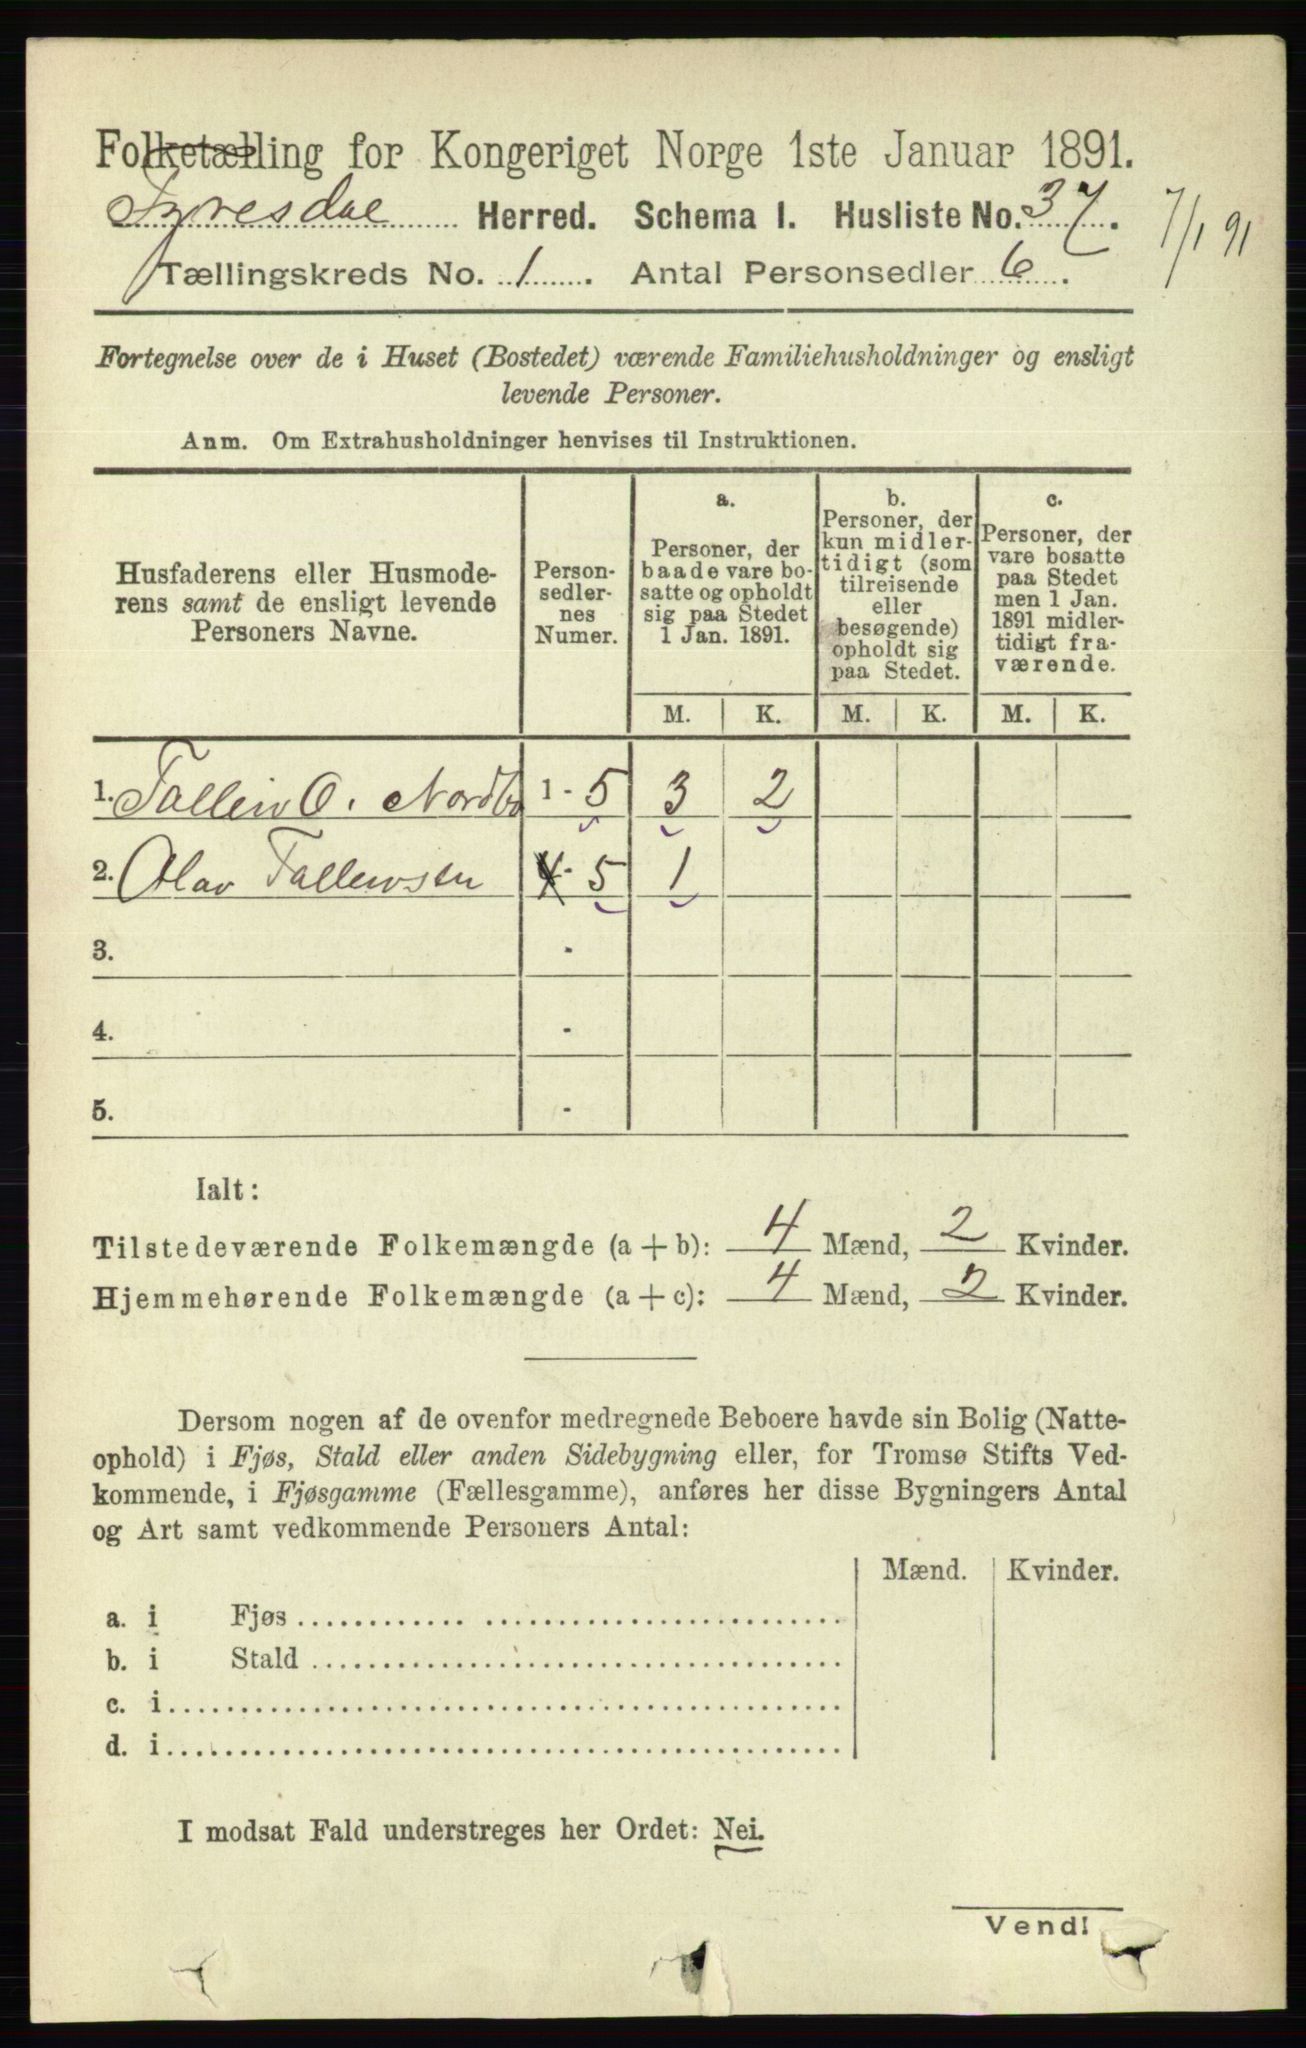 Folketælling for Kongeriget Norge 1ste Januar 1891.
Tyresdal Herred. Schema I. Husliste No. 37.
7/1 91
Tællingskreds No. 1. Antal Personsedler 6.
Fortegnelse over de i Huset (Bostedet) værende Familiehusholdninger og ensligt
levende Personer.
Anm. Om Extrahusholdninger henvises til Instruktionen.
Husfaderens eller Husmode-
rens samt de ensligt levende
Personers Navne.
Person-
sedler-
nes
Numer.
a.
Personer, der
baade vare bo-
satte og opholdt
sig paa Stedet
1 Jan. 1891.
b.
Personer, der
kun midler-
tidigt (som
tilreisende
eller
besøgende)
opholdt sig
paa Stedet.
c.
Personer, der
vare bosatte
paa Stedet
men 1 Jan.
1891 midler-
tidigt fra-
værende.
M. K. M. K. M. K.
1. Talleiv O. Nordbø 1 - 5 3 2
2. Olav Talleivsen 4 - 5 1
3. -
4. -
5. -
Ialt:
Tilstedeværende Folkemængde (a + b): 4 Mænd, 2 Kvinder.
Hjemmehørende Folkemængde (a + c): 4 Mænd, 2 Kvinder.
Dersom nogen af de ovenfor medregnede Beboere havde sin Bolig (Natte-
ophold) i Fjøs, Stald eller anden Sidebygning eller, for Tromsø Stifts Ved-
kommende, i Fjøsgamme (Fællesgamme), anføres her disse Bygningers Antal
og Art samt vedkommende Personers Antal:
Mænd. Kvinder.
a. i Fjøs
b. i Stald
c. i
d. i
I modsat Fald understreges her Ordet: Nei.
Vend!